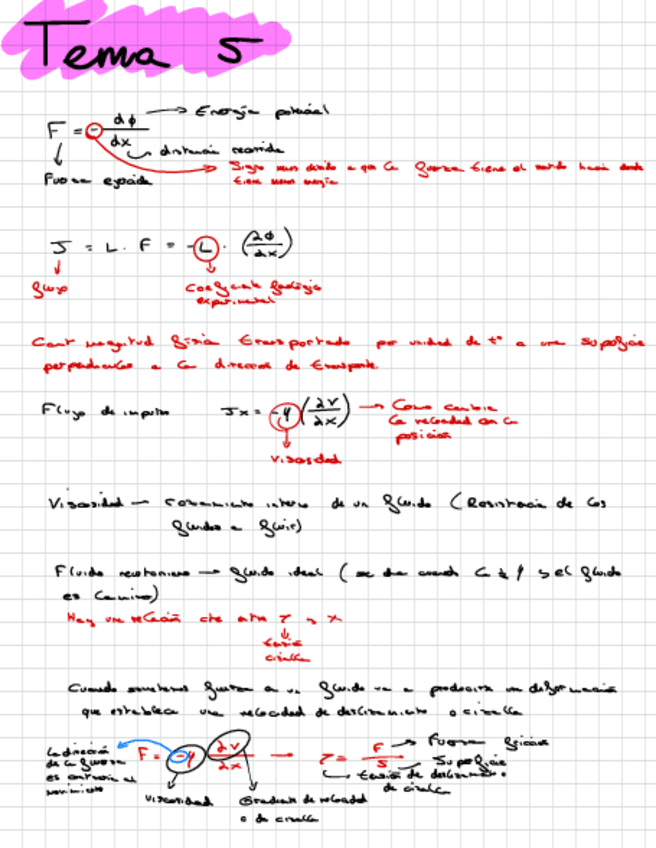 Tema 5
F = - dϕ/dx → Energía potencial
↳ distancia recorrida
Fuerza ejercida
Signo menos debido a que la fuerza tiene el sentido hacia donde
tiene menos energía
J = L · F = - L · (∂ϕ/∂x)
flujo
Coeficiente fenológio
experimental
Cant magnitud física transportada por unidad de tº a una superficie
perpendicular a la dirección de transporte.
Flujo de impulso Jx = -η (∂v/∂x) → Como cambia
la velocidad con la
posición
Viscosidad
Viscosidad — rozamiento interno de un fluido (Resistencia de los
fluidos a fluir)
Fluido newtoniano → fluido ideal (se da cuando la y el fluido
es laminar)
Hay una relación cte entre τ y
tensión
cizalla
Cuando sometemos fuerza a un fluido va a producirse una deformación
que establece una velocidad de deslizamiento o cizalla
La dirección
de la fuerza
es contraria al
movimiento
F = -η ∂v/∂x → τ = F/S
Fuerza
Superficie
tensión de deslizamiento o
de cizalla
viscosidad
Gradiente de velocidad
o de cizalla